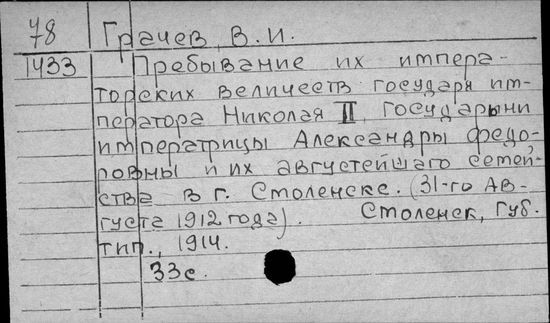 78 Грачев, В.И.
1433 Пребывание их импера-
торских величеств государя им-
ператора Николая II, государыни
императрицы Александры Федо-
ровны и их августейшаго семей-
ства в г. Смоленске. (31-го ав-
густа 1912 года). Смоленск, Губ.
тип., 1914.
33с.